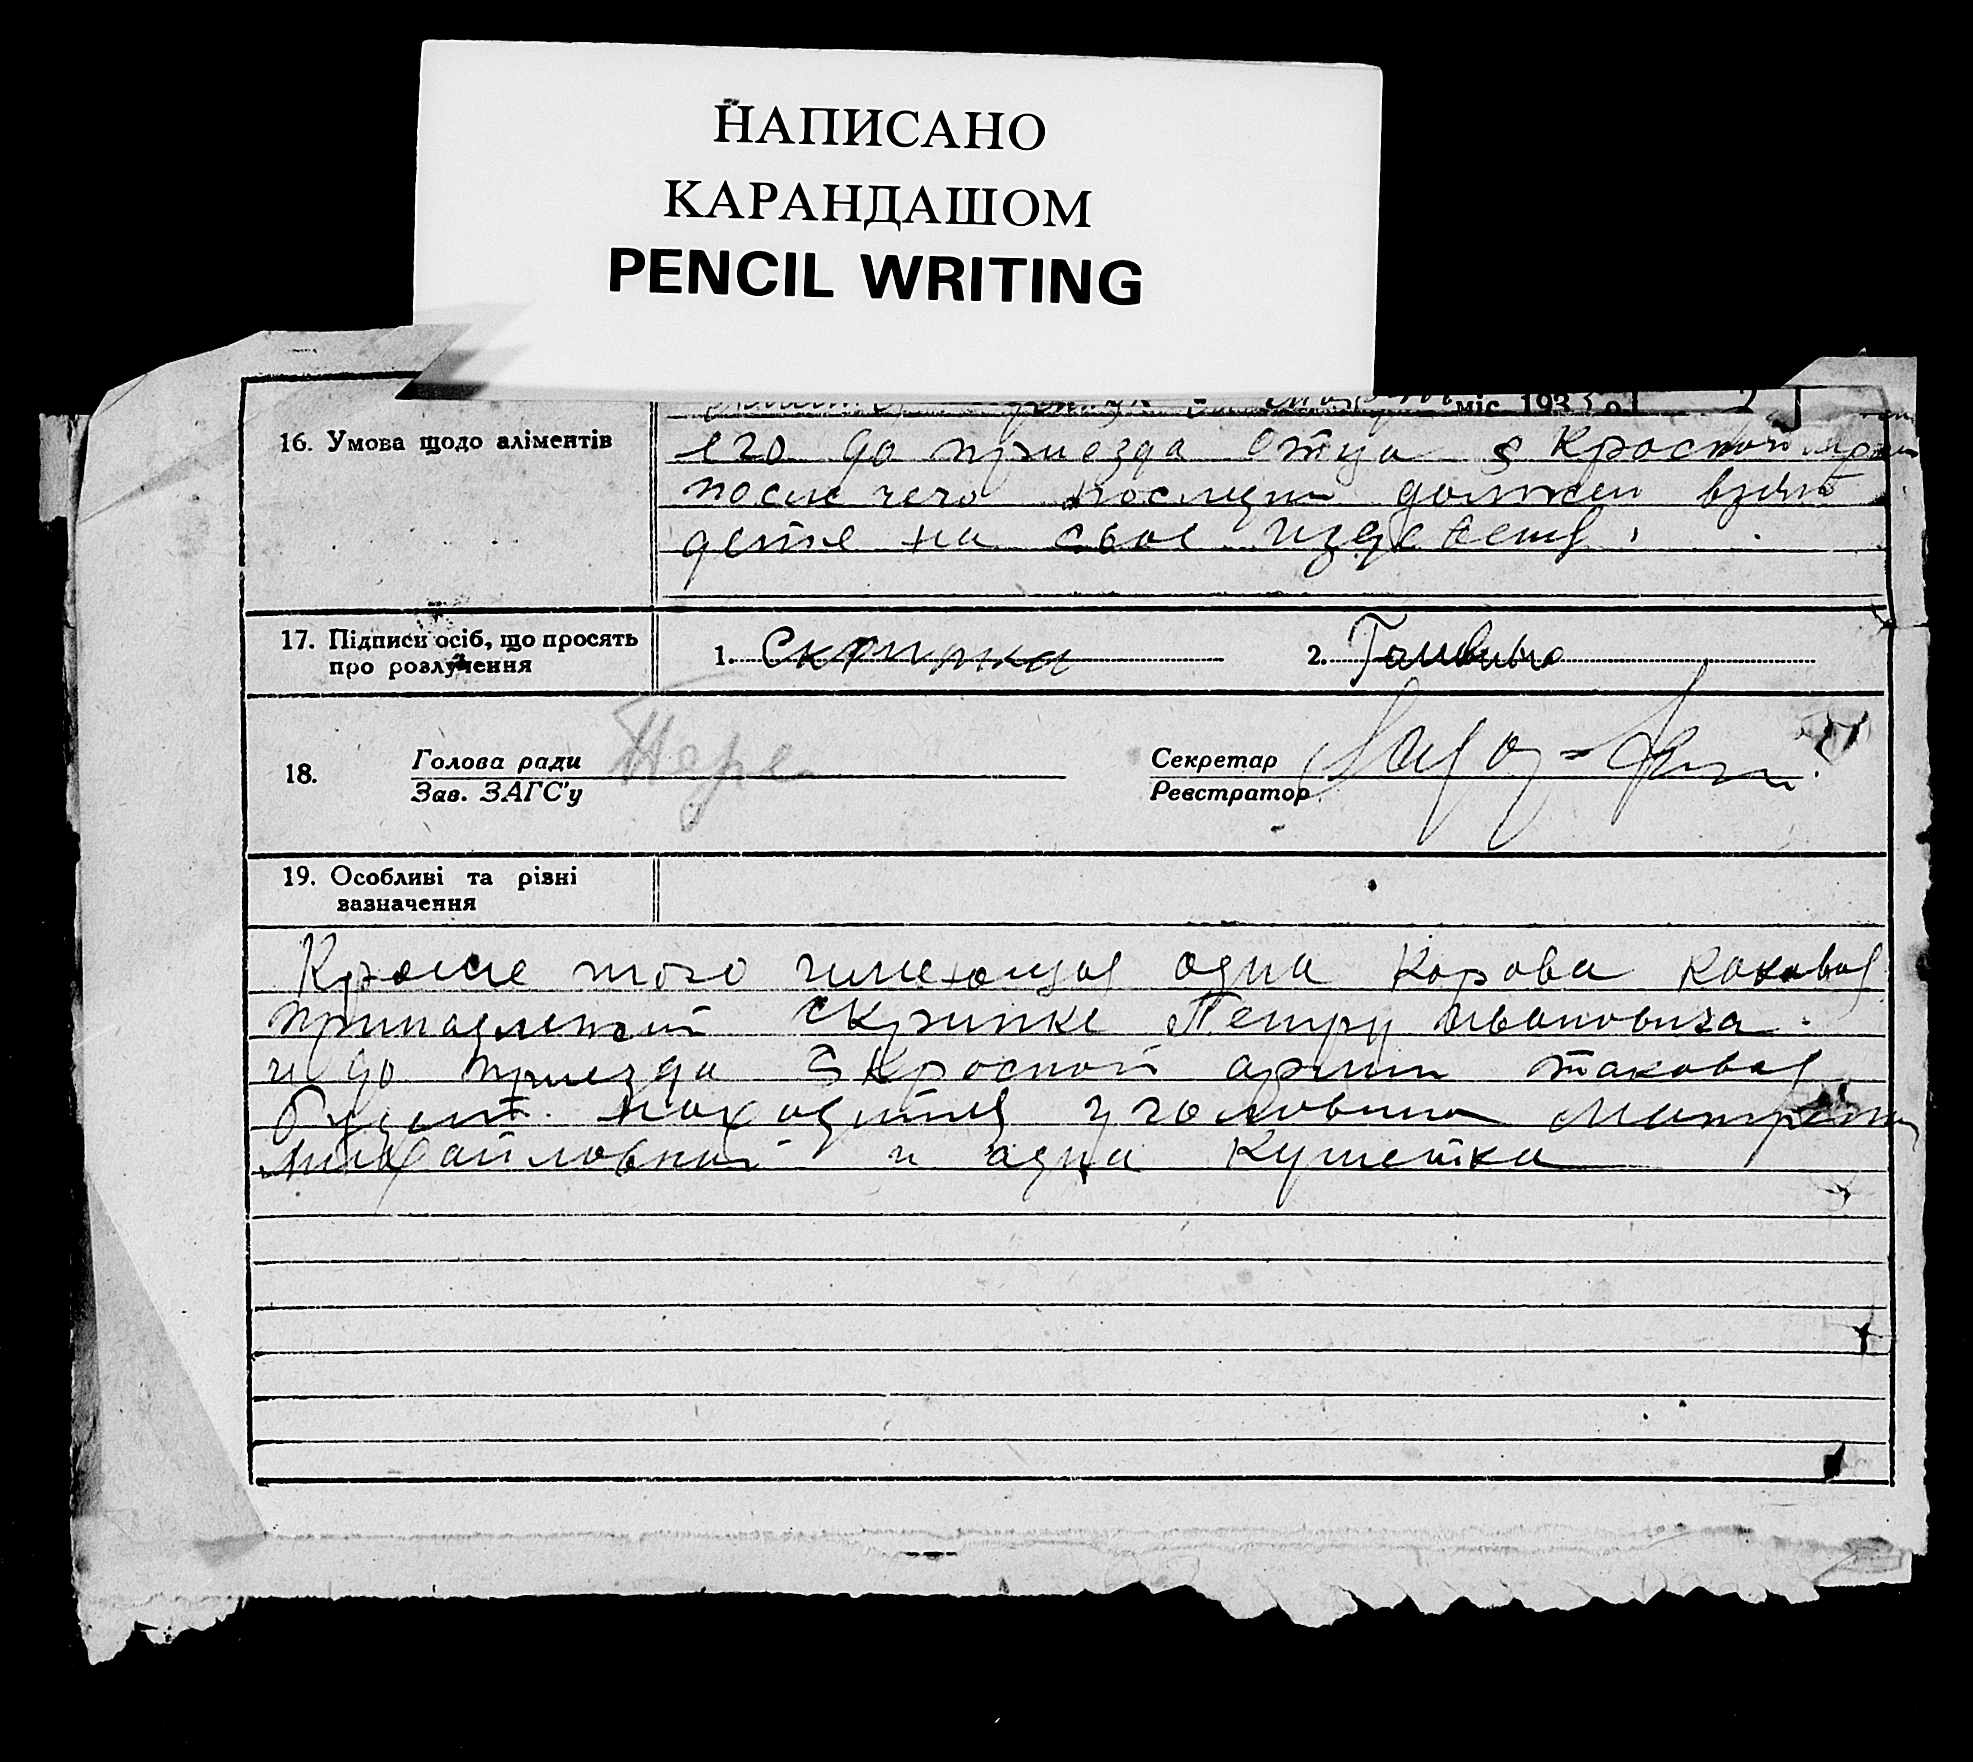 НАПИСАНО
КАРАНДАШОМ
PENCIL WRITING
міс. 193
16. Умова щодо аліментів
его до приезда отца с Красной армии
после чего последн должен взять
детяе на свое иждевенв.
17. Підписи осіб, що просять
про розлучення
1. Скрипка 2. Головино
18. Голова ради
Зав. ЗАГС'у
Секретар
Реєстратор
19. Особливі та різні
зазначення
Кроме того имеющая одна корова каковая
принадлежит Скрипке Петру Ивановича.
и до приезда с Красной арми таковая
будет находится у головино Матрены
михайловной и одна Кушетка